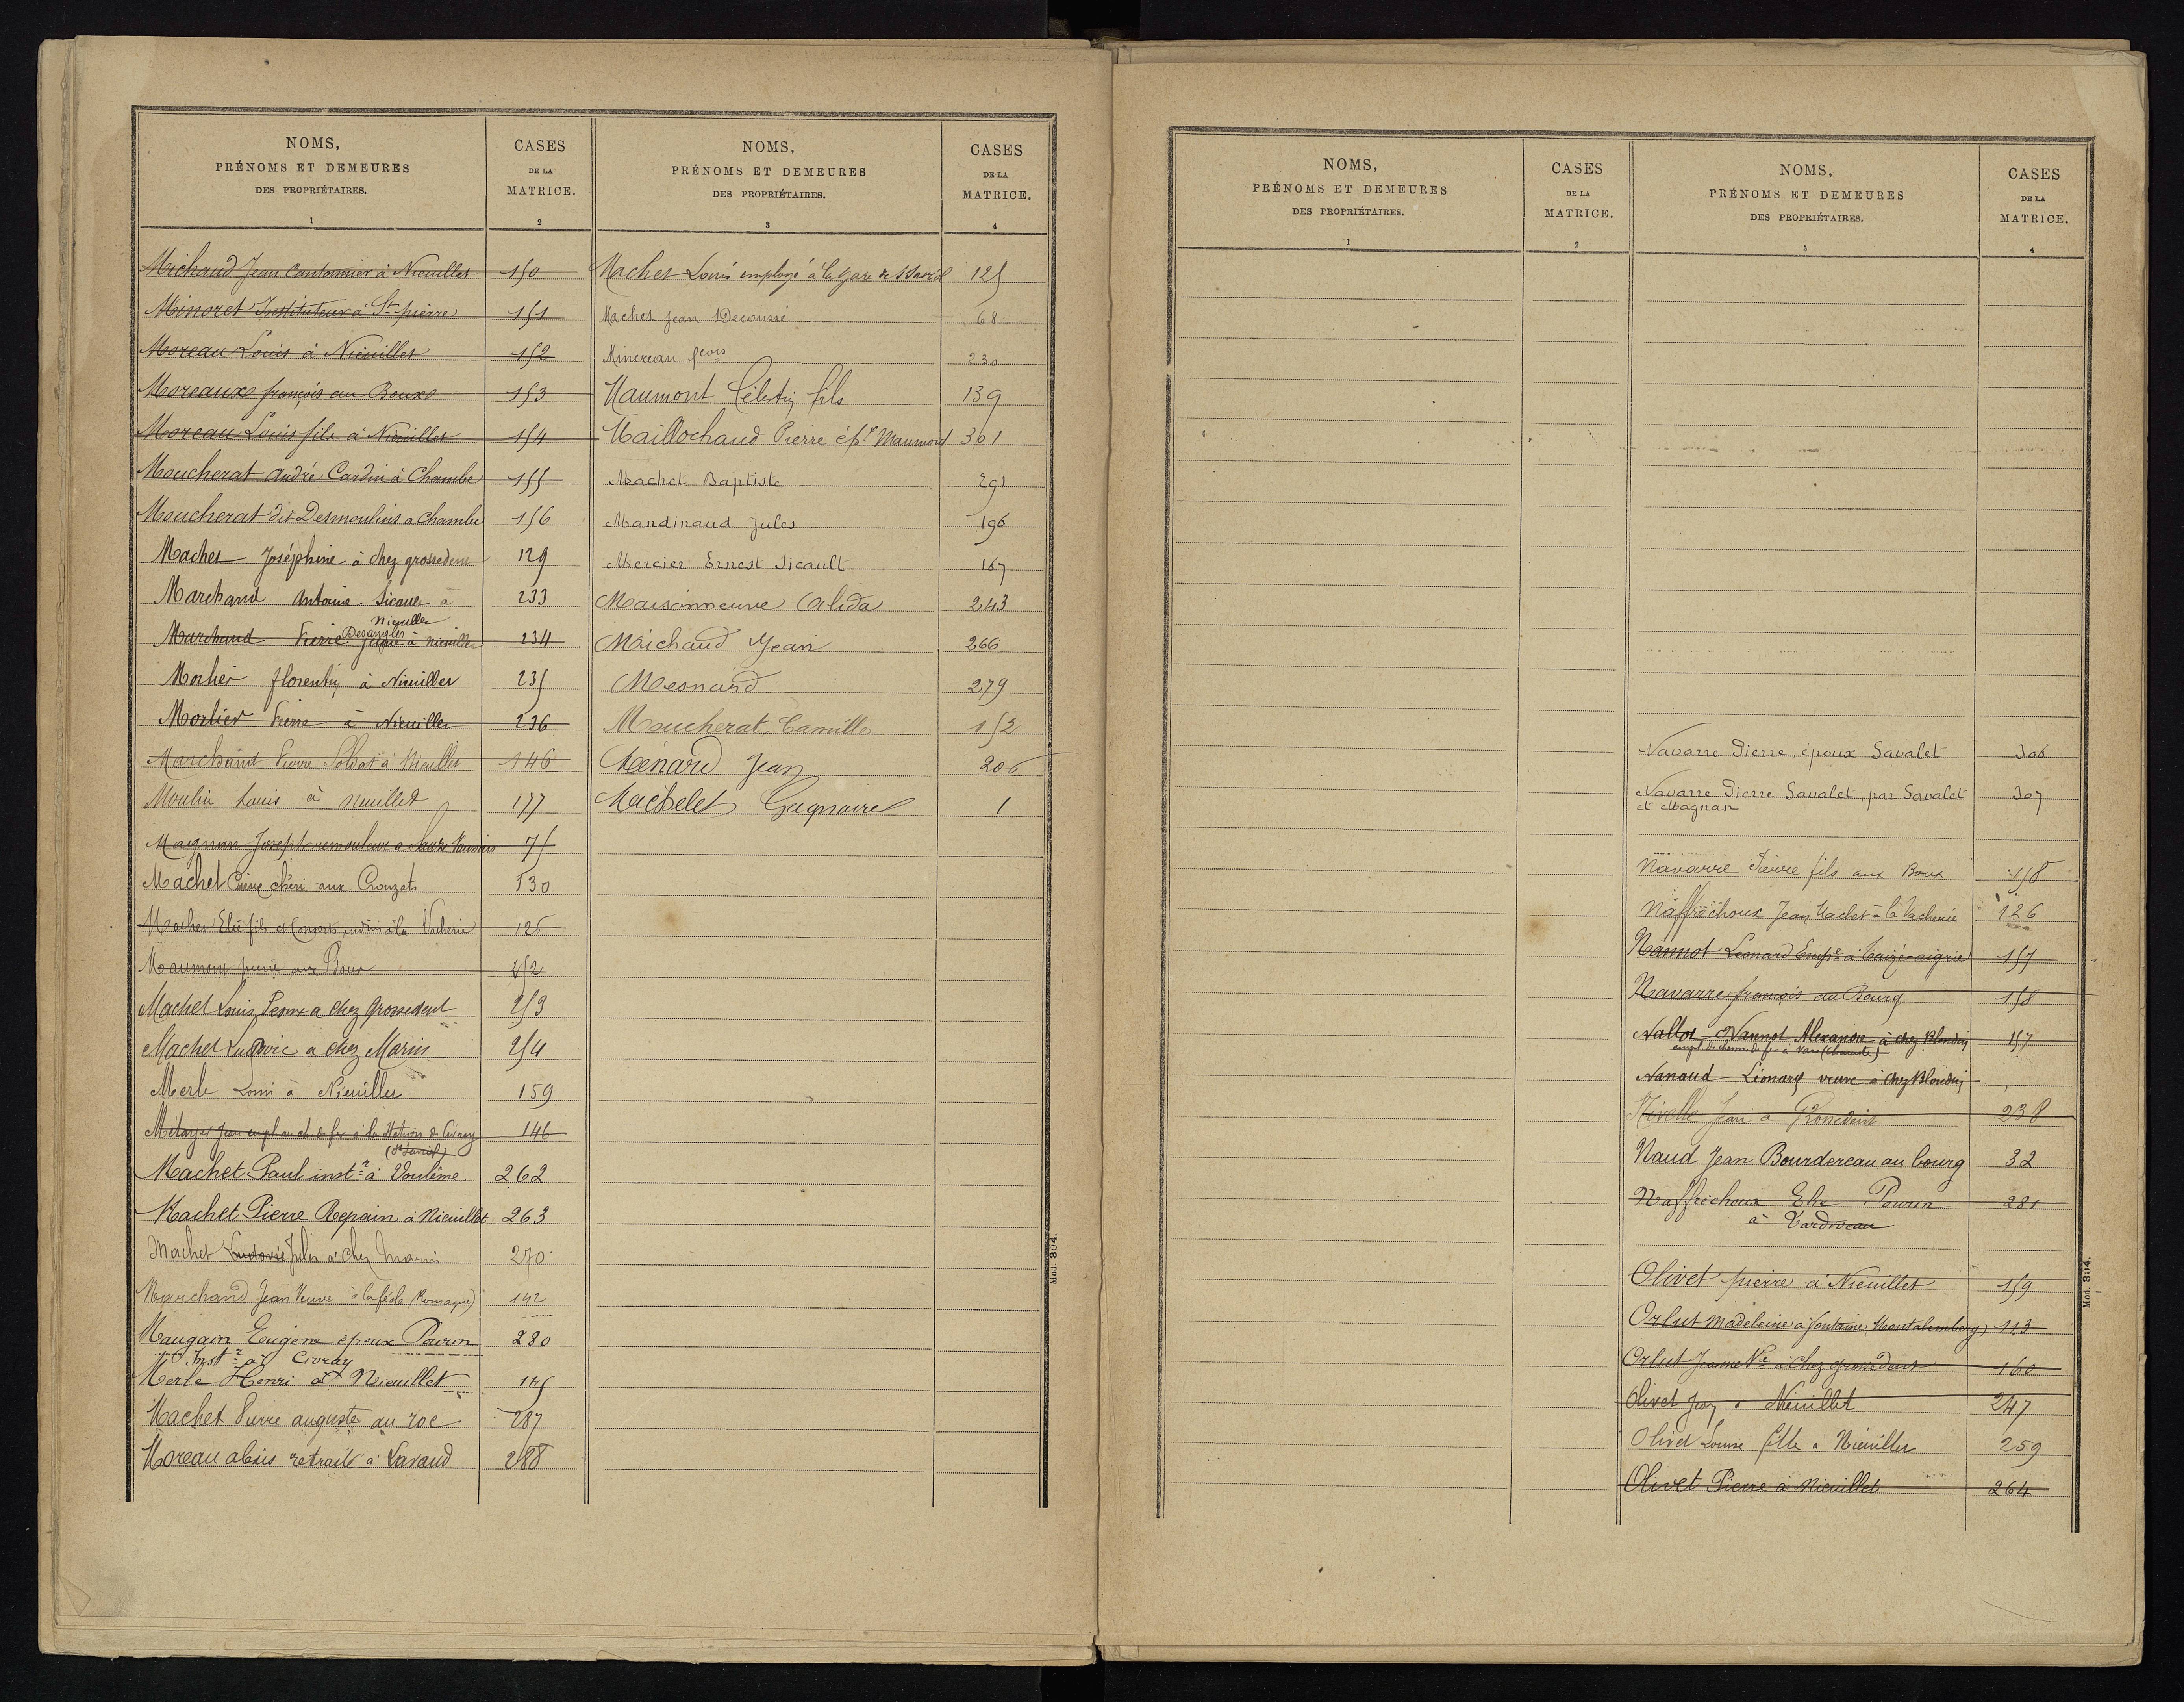 NOMS,
PRÉNOMS ET DEMEURES
DES PROPRIÉTAIRES.
1
CASES
DE LA
MATRICE.
2
Michaud Jean Cantonnier à Nieuillet 150
Minoret Instituteur à St pierre 151
Moreau Louis à Nieuillet 152
Moreaux françois au Boux 153
Moreau Louis fils à Nieuillet 154
Moucherat André Cardin à Chambe 155
Moucherat dit Desmoulins a Chambe 156
Machet Joséphine à chez grossedent 129
Marchand Antoine Sicaut à 233
Nieuillet
Marchand Pierre Desangles à nieuillet 234
Morlier florentin à Nieuillet 235
Morlier Pierre à Nieuillet 236
Marchand Pierre Soldat à Nieuillet 146
Moulin Louis à Nieuillet 177
Magnan Joseph remouleur a Sauzé Vaussais 75
Machet Pierre chéri aux Crouzats 130
Machet Elie fils et Consorts à la Vacherie 126
Maumont pierre aux Boux 252
Machet Louis Pesnx a chez Grossedent 253
Machet Ludovic a chez Marin 254
Merle Louis à Nieuillet 159
Métayer Jean empl au ch de fer à la Station de Civray 146
(St Saviol)
Machet Paul instr à Voulême 262
Machet Pierre Repain à Nieuillet 263
Machet Ludovic Jules à chez Marin 270
Marchand Jean Veuve à la féole (Romagne) 142
Maugain Eugène époux Pourin 280
Instr à Civray
Merle Henri à Nieuillet 145
Machet Pierre auguste au roc 287
Moreau alexis retraité à Lavaud 288
NOMS,
PRÉNOMS ET DEMEURES
DES PROPRIÉTAIRES.
3
CASES
DE LA
MATRICE.
4
Machet Louis employé à la gare de St Saviol 125
Machet Jean Decoussé 68
Minereau fçois 230
Maumont Célestin fils 139
Maillochaud Pierre ép. Maumont 301
Machet Baptiste 291
Mandinaud Jules 196
Mercier Ernest Sicault 167
Maisonneuve Alida 243
Michaud Jean 266
Mesnard 279
Moucherat Camille 152
Ménard Jean 206
Machelet Gagnaire 1
Mod. 304.
NOMS,
PRÉNOMS ET DEMEURES
DES PROPRIÉTAIRES.
1
CASES
DE LA
MATRICE.
2
NOMS,
PRÉNOMS ET DEMEURES
DES PROPRIÉTAIRES.
3
CASES
DE LA
MATRICE.
4
Navarre Pierre, époux Savalet 306
Navarre Pierre Savalet, par Savalet 307
et Magnan
Navarre Pierre fils aux Boux 158
Naffréchoux Jean Machet à la Vacherie 126
Nannot Léonard à Taizé-aizie 157
Navarre françois au Bourg 158
Nallot - Nannot Alexandre à chez Blondin 157
empl. du chemin de fer à Vars (Charente)
Nanaud Léonard veuve à Chez Blondin
Nivelle Jean a Grossedent 238
Naud Jean Bourdereau au bourg 32
Naffréchoux Elie Pourin 281
à Vardiveau
Olivet pierre à Nieuillet 159
Orlut Madeleine à fontaine, Montalembert 113
Orlut Jeanne Ve à Chez grossedent 160
Olivet Jean à Nieuillet 247
Olivet Louise fille à Nieuillet 259
Olivet Pierre à Nieuillet 264
Mod. 304.